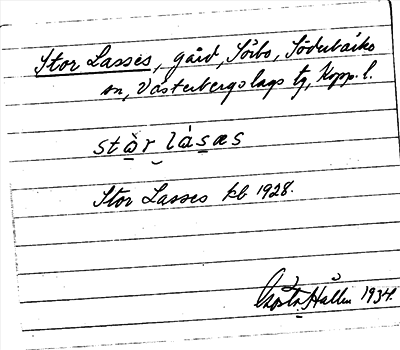 Stor Lasses, gård, Sörbo, Söderbärke
sn, Västerbergslags tg, Kopp. l.
stàr làsas
Stor Lasses kb 1928.
Gösta Hallin 1934.